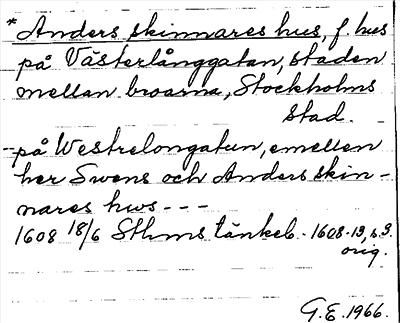 * Anders skinnares hus, f. hus
på Västerlånggatan, staden
mellan broarna, Stockholms
stad.
-- på Westrelongatun, emellen
her Swens och Anders skin-
nares hws - - -
1608 18/6 Sthms tänkeb. 1608-13, s. 3.
orig.
G.E. 1966.